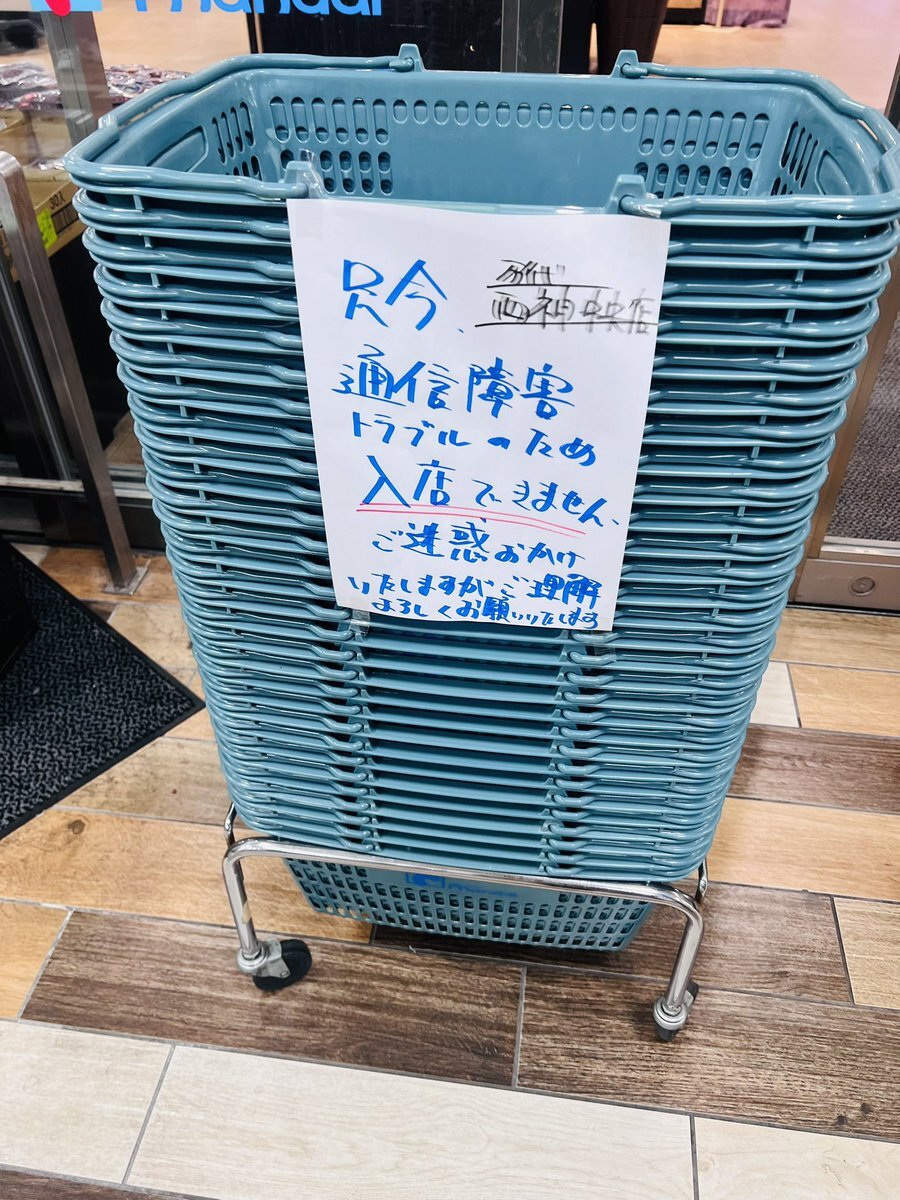 mandai
只今、
西神中央店
通信障害
トラブルのため
入店できません。
ご迷惑おかけ
いたしますが、ご理解
よろしくお願いいたします
mandai